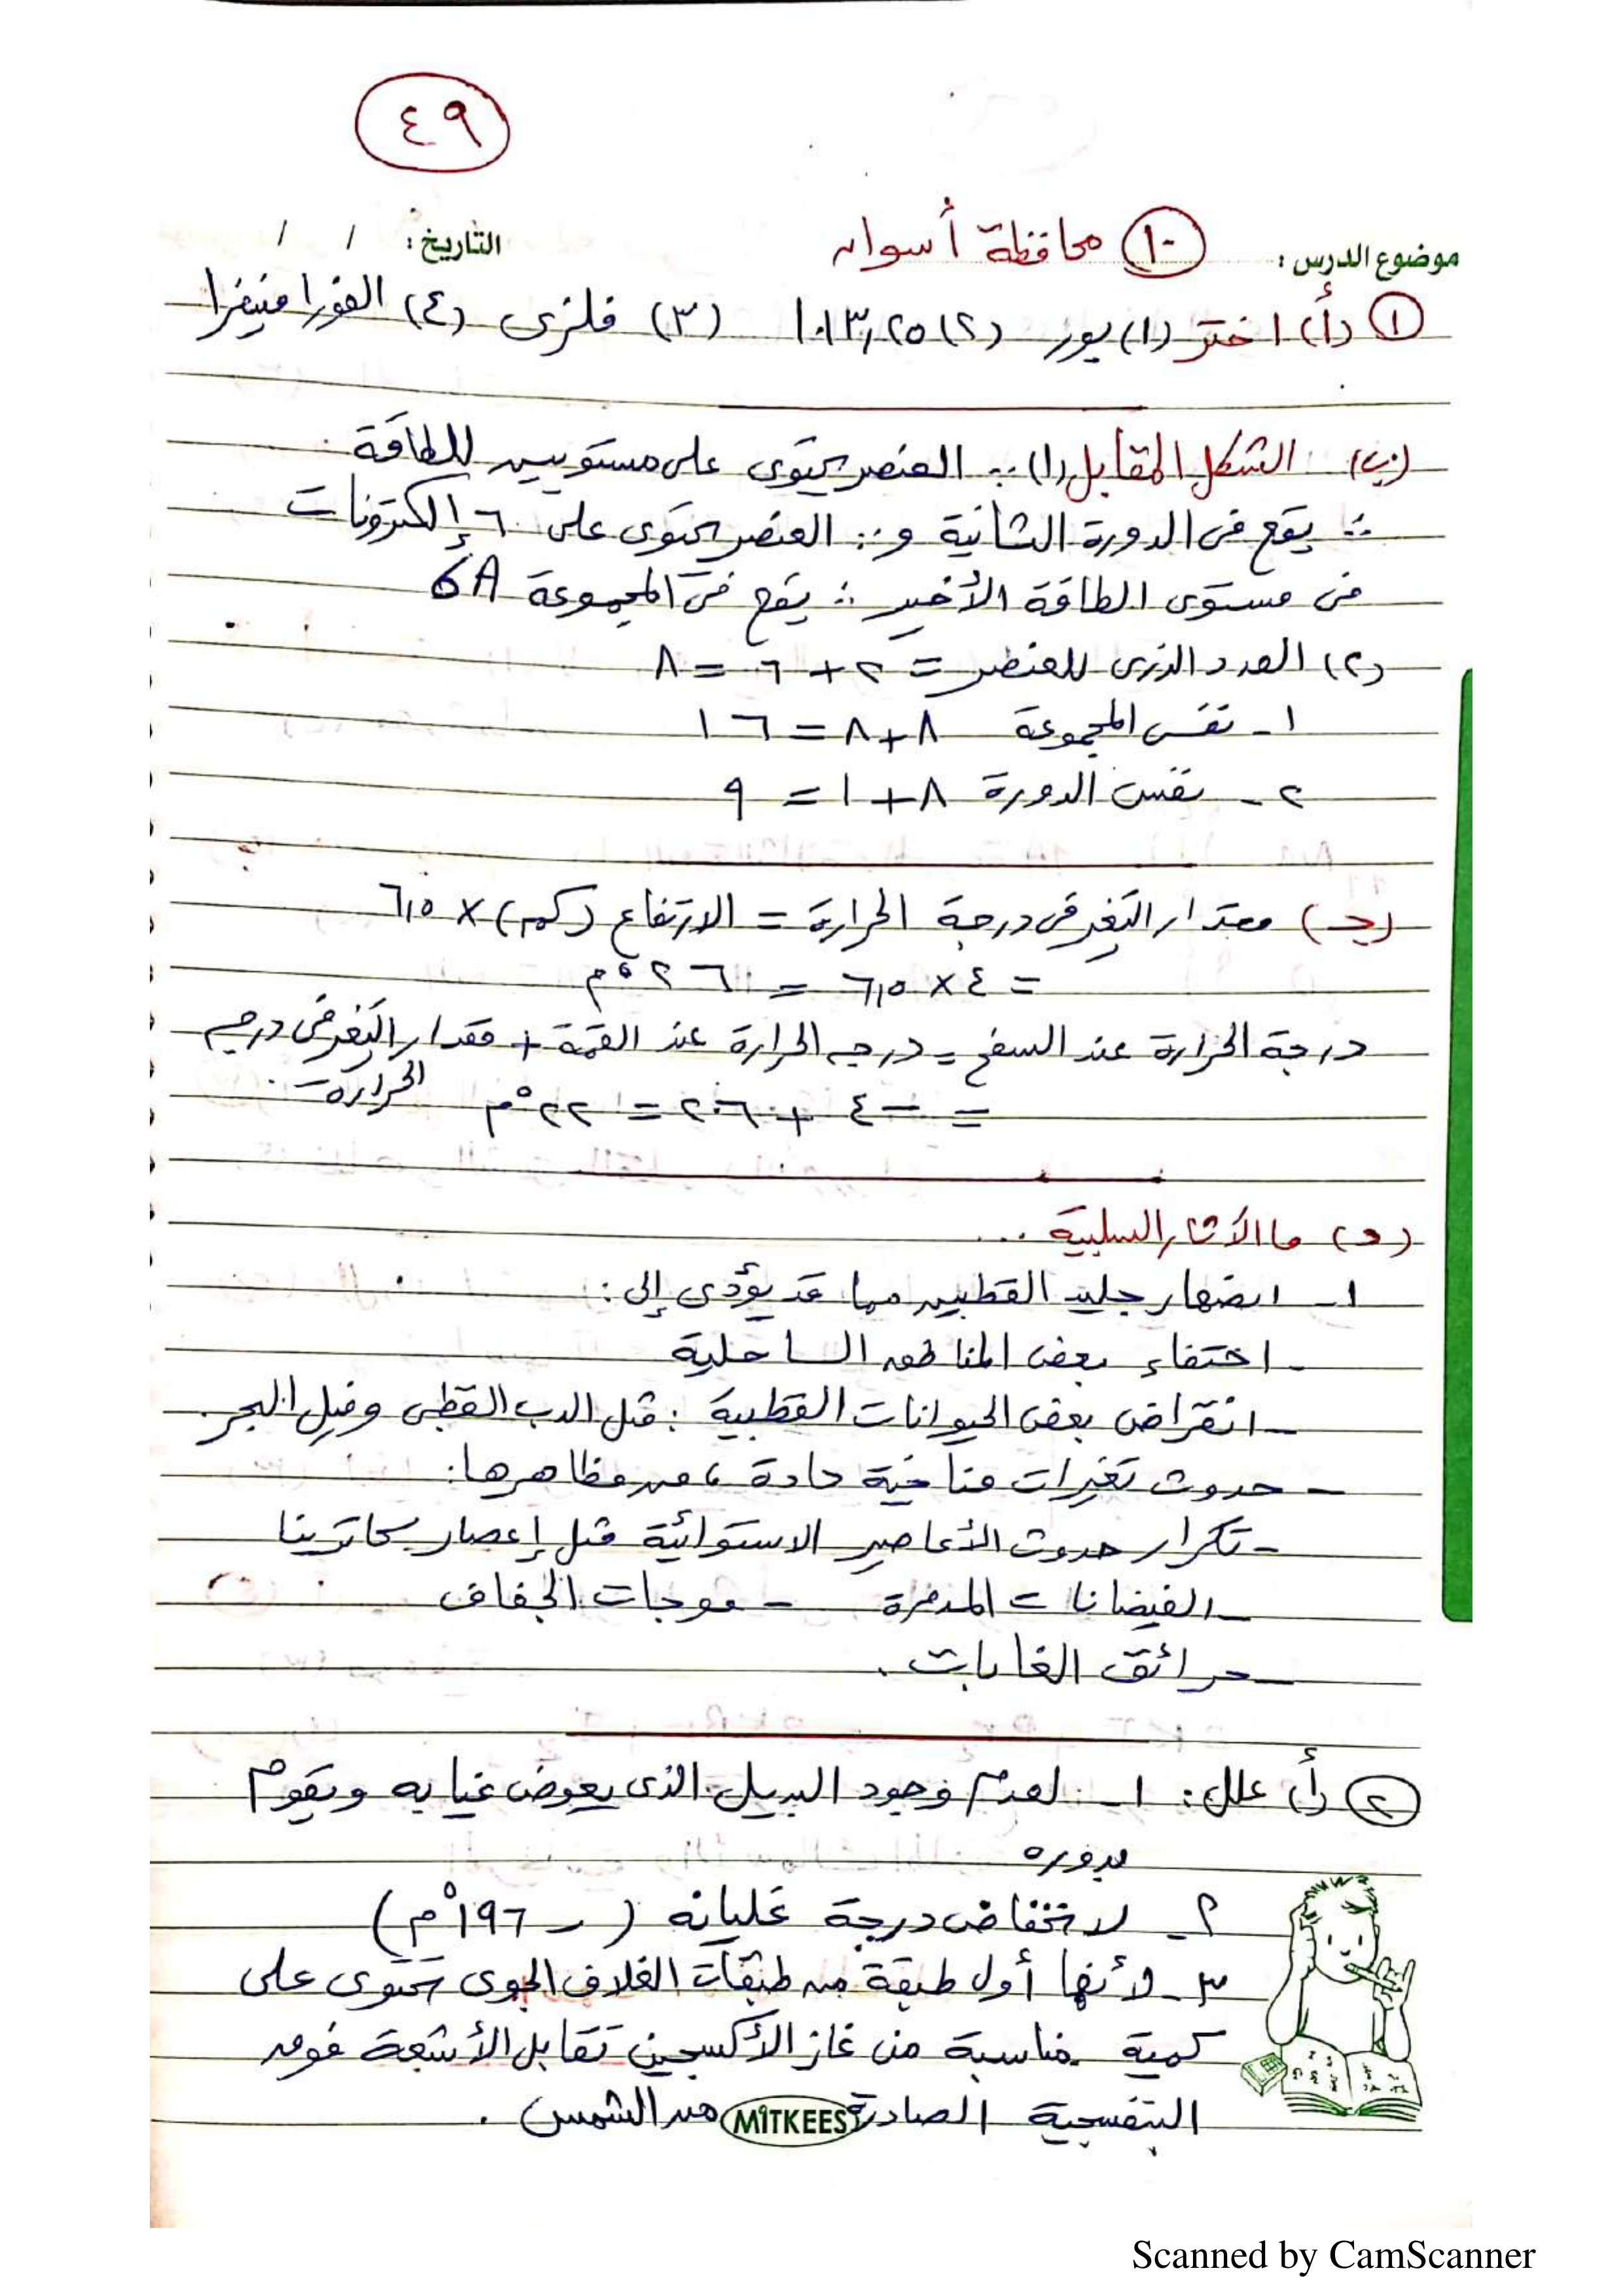 ٤٩
موضوع الدرس: ١٠ محافظة أسوان التاريخ: / /
١ (أ) اختر (١) بور (٢) ١٠١٣,٢٥ (٣) فلزى (٤) الفورامنيفرا
(ب) الشكل المقابل (١) ∵ العنصر يحتوى على مستويين للطاقة
∴ يقع فى الدورة الثانية و ∵ العنصر يحتوى على ٦ إلكترونات
فى مستوى الطاقة الأخير ∴ يقع فى المجموعة 6A
(٢) العدد الذرى للعنصر = ٢ + ٦ = ٨
١ - نفس المجموعة ٨ + ٨ = ١٦
٢ - نفس الدورة ٨ + ١ = ٩
(جـ) مقدار التغير فى درجة الحرارة = الارتفاع (كم) × ٦,٥
= ٤ × ٦,٥ = ٢٦ °م
درجة الحرارة عند السفح = درجه الحرارة عند القمة + مقدار التغير فى درجه
الحرارة
= -٤ + ٢٦ = ٢٢ °م
(د) ما الآثار السلبية ...
١ - انصهار جليد القطبين مما قد يؤدى إلى :
- اختفاء بعض المناطق الساحلية
- انقراض بعض الحيوانات القطبية : مثل الدب القطبى وفيل البحر
- حدوث تغيرات مناخية حادة ، من مظاهرها :
- تكرار حدوث الأعاصير الاستوائية مثل إعصار كاترينا
- الفيضانات المدمرة - موجات الجفاف
- حرائق الغابات .
٢ (أ) علل : ١ - لعدم وجود البديل الذى يعوض غيابه ويقوم
بدوره
٢ - لانخفاض درجة غليانه ( - ١٩٦ °م )
٣ - لأنها أول طبقة من طبقات الغلاف الجوى تحتوى على
كمية مناسبة من غاز الأكسجين تقابل الأشعة فوق
البنفسجية الصادرة من الشمس .
MITKEES
Scanned by CamScanner